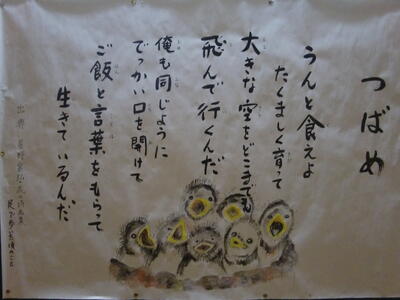 つばめ
うんと食えよ
たくましく育って
大きな空をどこまでも
飛んで行くんだ
俺も同じように
でっかい口を開けて
ご飯と言葉をもらって
生きているんだ